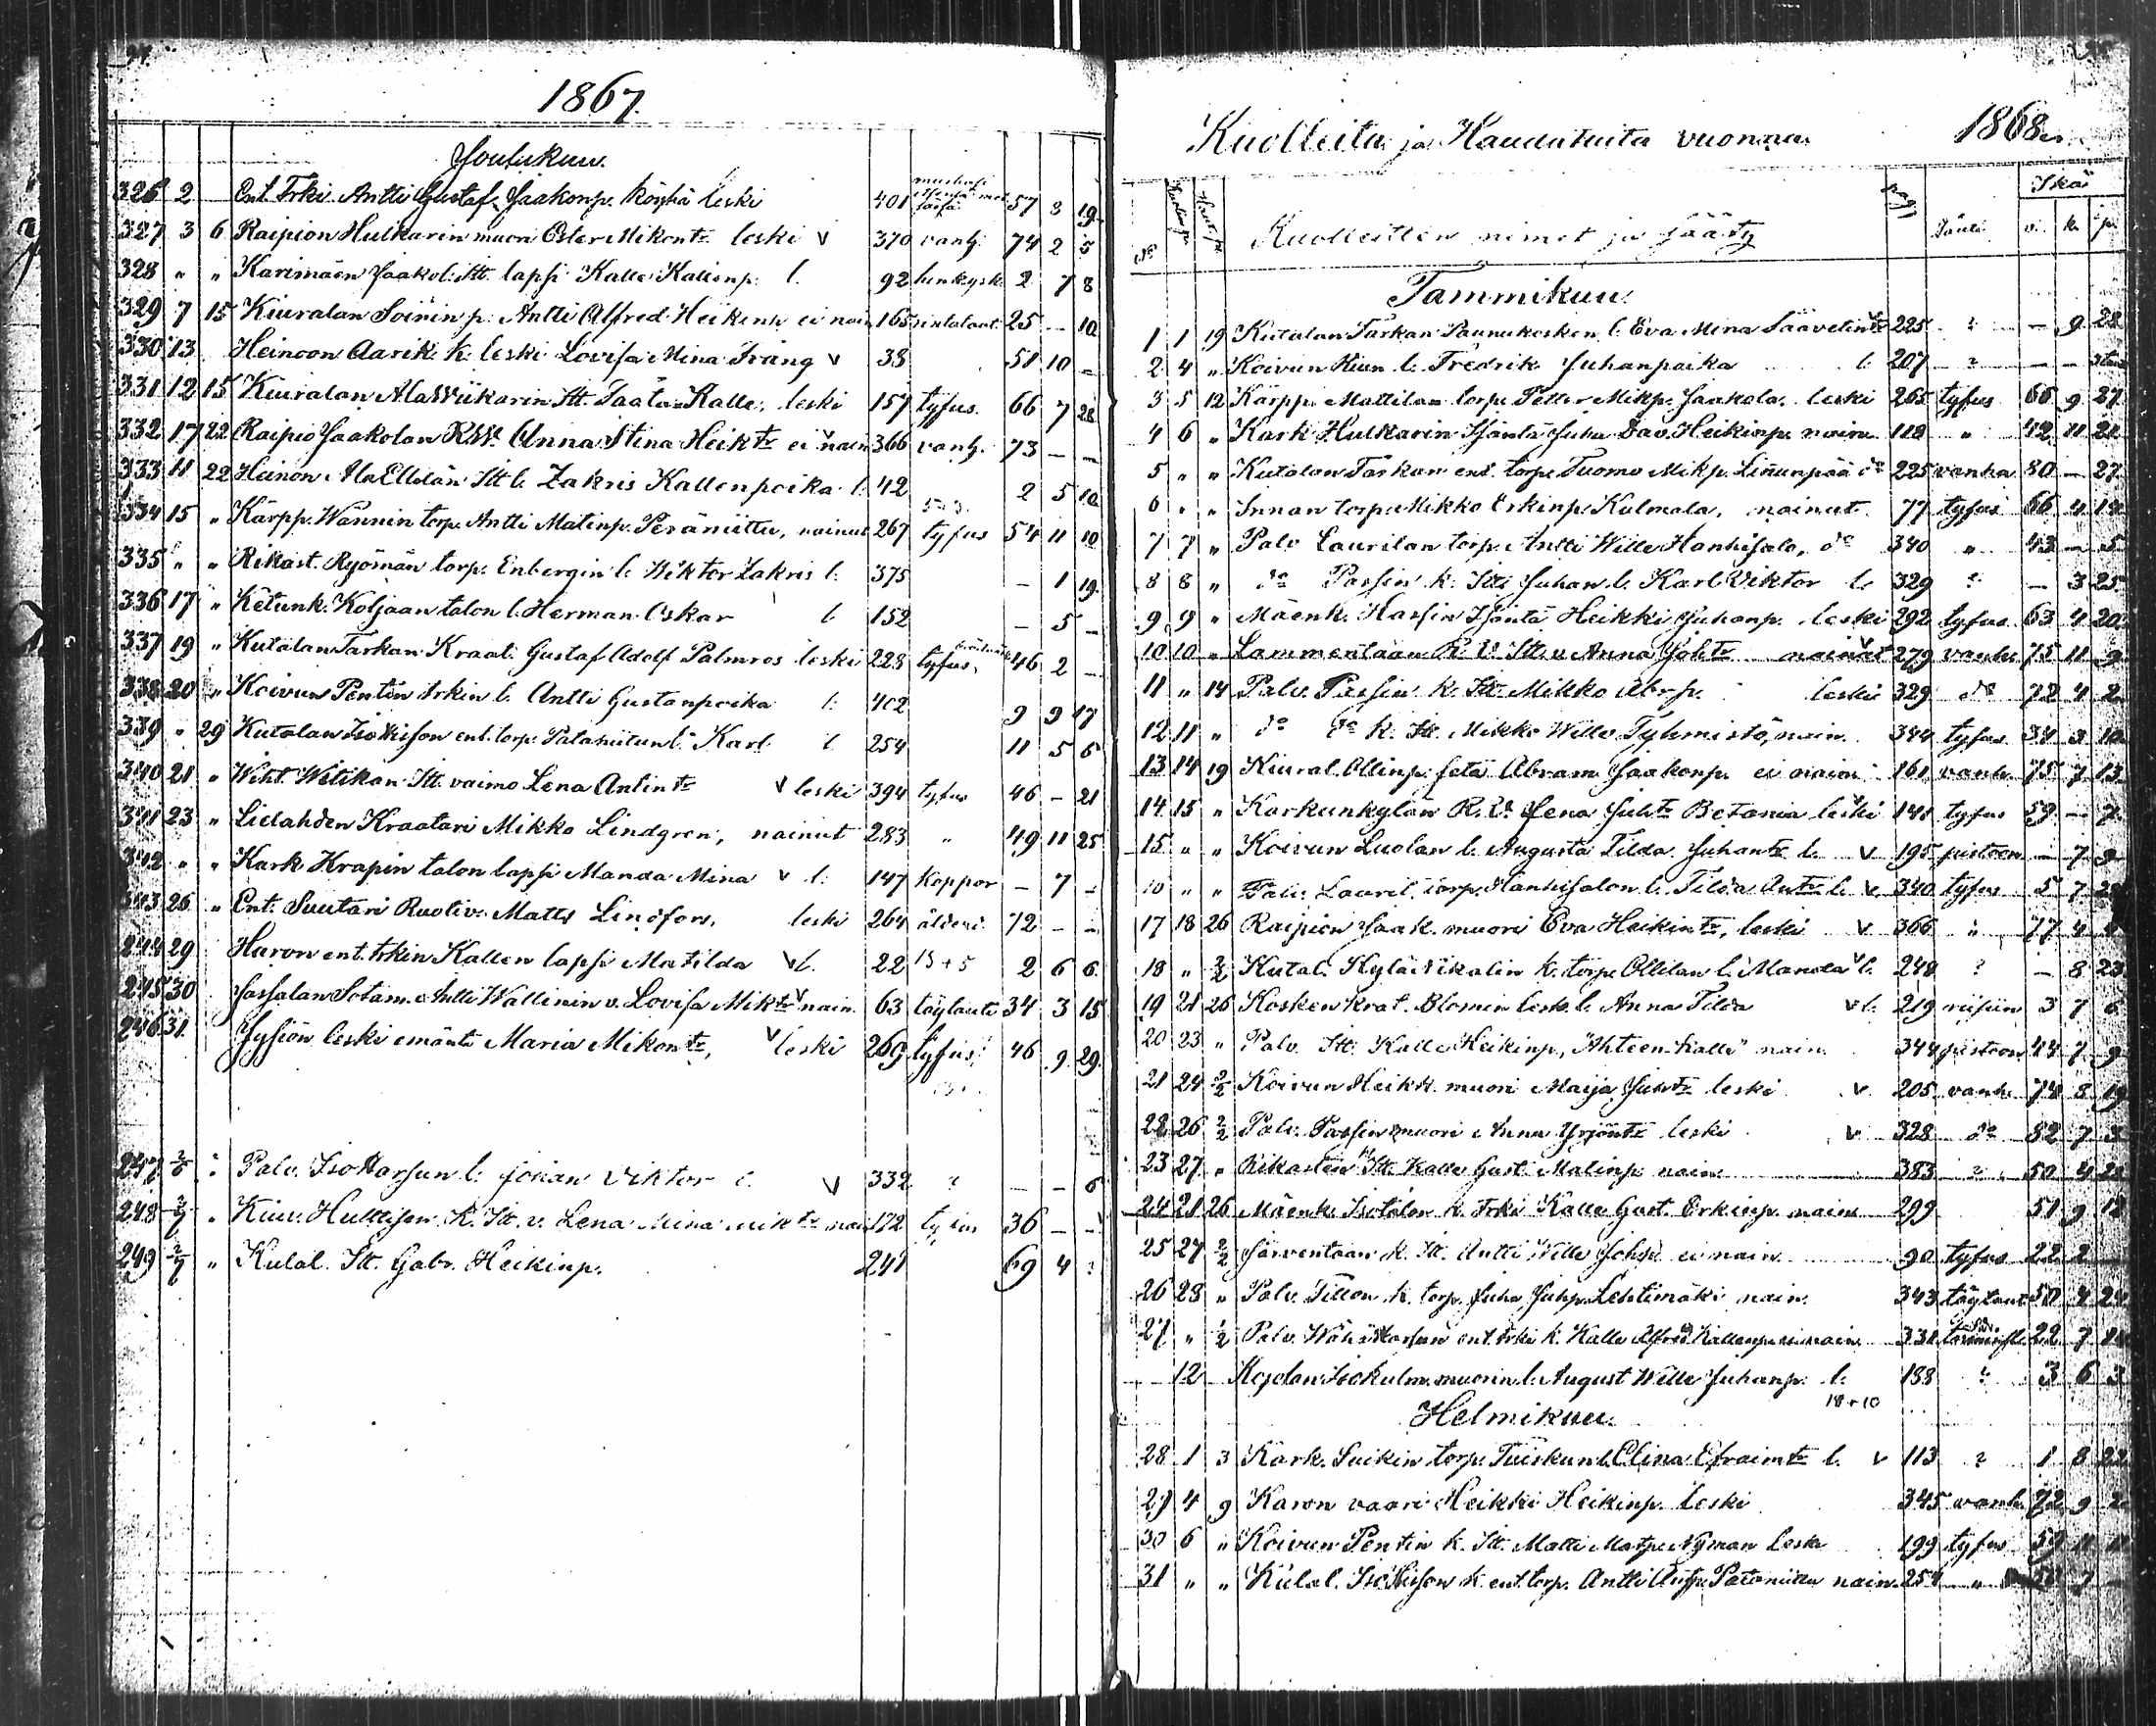 1867.
Joulukuu.
326 2 Ent. Trki Antti Gustaf Jaakonp. köyhä leski 401 57 3 19
327 3 6 Raipion Hulkarin muori Ester Mikont. leski v 370 vanh. 74 2 5
328 " " Karimäen Jaakol. Itt. lapsi Kalle Kallenp. l. 92 henkysk. 2 7 8
329 7 15 Kiuralan Soinin p. Antti Alfred Heikinp. ei nain 165 rintataut. 25 - 10
330 13 Heinoon Aarik. k. leski Lovisa Mina Trang v 38 51 10 -
331 12 15 Kiuralan AlaWiikarin Itt. Taata Kalle, leski 157 tyfus. 66 7 28
332 17 22 Raipio Jaakolan R.W. Anna Stina Heikt. ei nain 366 vanh. 73 - -
333 11 22 Heinon AlaElldän Itt. l. Zakris Kallenpoika l. 42 2 5 10
334 15 " Kärpp. Wännin torp. Antti Matinp. Peräniittu, nainut 267 tyfus 54 11 10
335 " " Rikast. Ryömän torp. Enbergin l. Wiktor Zakris l. 375 - 1 19
336 17 " Ketunk. Koljaan talon l. Herman Oskar l. 152 - 5 -
337 19 " Kutalan Tarkan Kraat. Gustaf Adolf Palmros leski 228 tyfus, 46 2 -
338 20 " Koivun Pentin trkin l. Antti Gustanpoika l. 402 9 9 17
339 " 29 Kutalan IsoNisson ent. torp. Pataniitun l. Karl l. 254 11 5 6
340 21 " Wiht. Witikan Itt. vaimo Lena Antint. v leski 394 tyfus 46 - 21
341 23 " Lielahden Kraatari Mikko Lindgren, nainut 283 " 49 11 25
342 " " Kark. Krapin talon lapsi Manda Mina v l. 147 koppor - 7 -
343 26 " Ent. Suutari Ruotiv. Matts Lindfors, leski 264 ålderd. 72 - -
244 29 Haron ent. trkin Kallen lapsi Matilda v l. 22 13+5 2 6 6
245 30 Sassalan Sotam. Antti Wallinin v. Lovisa Mikt. v nain. 63 täytauti 34 3 15
246 31. Jysiön leski emäntä Maria Mikont., v leski 269 tyfus 46 9 29
247 2/6 " Palv. IsoHarsun l. Johan Viktor l. v 332 - - 6
248 2/7 " Kiur. Hultison k. Itt. v. Lena Mina Mikt. nai 172 tyfus 36 - -
249 2/7 " Kulal. Itt. Gabr. Heikinp. 241 69 4
Kuolleita ja Haudatuita vuonna 1868
No Pag. Tauti. Ikä
Kuolleitten nimet ja sääty v. k. p.
Tammikuu.
1 1 19 Kutalan Tarkan Paunukosken l. Eva Mina Säävelint. 225 ? - 9 28
2 4 " Koivun Hiun l. Fredrik Juhanpoika l. 207 ? - -
3 5 12 Kärpp. Mattilan torp. Petter Mikp. Jaakola. leski 265 tyfus 66 9 27
4 6 " Kark. Hulkarin Isäntä Juha Dav. Heikinp. nain. 118 " 42 11 21
5 " " Kutalan Tarkan ent. torp. Tuomo Mikp. Linunpää do 225 vanha 80 - 27
6 " " Innan torp. Mikko Erkinp. Kulmala, nainut. 77 tyfus 66 4 12
7 7 " Palv. Laurilan torp. Antti Wille Hanhisalo, do 340 " 43 - 5
8 8 " do Passin k. Itt. Juhan l. Karl Viktor l. 329 ? - 3 25
9 9 " Mäenk. Harsin Isäntä Heikki Juhanp. leski 292 tyfus 63 4 20
10 10 " Lammentaan R.V. Itt. v. Anna Joht. nainut 279 vanh. 75 11 9
11 " 14 Palv. Passin k. Itt. Mikko Abrp. leski 329 do 72 4 2
12 11 " do do k. Itt. Mikko Wille Tyhmistö, nain. 344 tyfus 34 3 10
13 14 19 Kiural. Ollinp. setä Abram Jaakonp. ei nain 161 vanh. 75 7 13
14 15 " Karkunkylän R.V. Lena Juht. Betania leski 141 tyfus 59 - 7
15 " " Koivun Luolan l. Augusta Tilda Juhant. l. v 195 pistoon - 7 9
16 " " Palv. Lauril. torp. Hanhisalon l. Tilda Ant. l. v 340 tyfus 5 7 28
17 18 26 Raipion Jaak. muori Eva Heikint., leski v 366 " 77 4 4
18 " 2/2 Kutal. KyläNikalin k. torp. Ollilan l. Manda v l. 248 ? - 8 23
19 21 26 Kosken Krat. Blomin lesk. l. Anna Tilda v l. 219 riisiin 3 7 6
20 23 " Palv. Itt. Kalle Heikinp., "Ahteen Kalle" nain. 344 pistoon 44 7 9
21 24 2/2 Koivun Heikk. muori Maija Juht. leski v 205 vanh. 74 8 19
22 26 2/2 Palv. Passin muori Anna Yrjönt. leski v 328 do 82 7 3
23 27 " Rikasten Itt. Kalle Gust. Matinp. nain. 383 ? 50 4 23
24 21 26 Mäenk. Isotalon k. Trki Kalle Gust. Erkinp. nain. 299 51 9 12
25 27 2/2 Järventaan k. Itt. Antti Wille Johp. ei nain 90 tyfus 22 2
26 28 " Palv. Tillon k. torp. Juha Juhp. Lehtimäki nain. 343 täytaut 50 4 24
27 " 1/2 Palv. WähäHarsun ent. trki k. Kalle Alfred Kallenp. ei nain 331 22 7 14
- 12 - Kojolan Isokulm. muorin l. August Wille Juhanp. l. 188 ? 3 6 3
18+10
Helmikuu.
28 1 3 Kark. Suikin torp. Tuiskun l. Elina Efraimt. l. v 113 ? 1 8 22
29 4 9 Karon vaari Heikki Heikinp. leski 345 vanh. 72 9 2
30 6 " Koivun Pentin k. Itt. Matti Matp. Nyman lesk. 199 tyfus 59 11 11
31 " " Kulal. IsoNisson k. ent. torp. Antti Antp. Pataniittu nain. 254 " 7